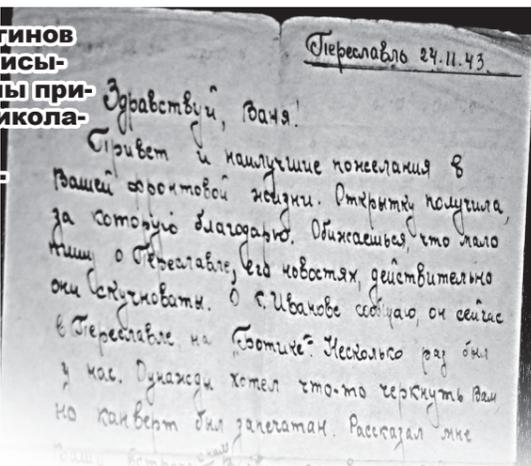 гинов
исы-
ны при-
икола-
Переславль 24.11.43
Здравствуй, Ваня!
Привет и наилучшие пожелания в
Вашей фронтовой жизни. Открытку получила,
за которую благодарю. Обижаешься, что мало
пишу о Переславле, его новостях, действительно
они скучноваты. О т. Иванове сообщаю, он сейчас
в Переславле на „Ботике“. Несколько раз был
у нас. Однажды хотел что-то черкнуть Вам,
но конверт был запечатан. Рассказал мне